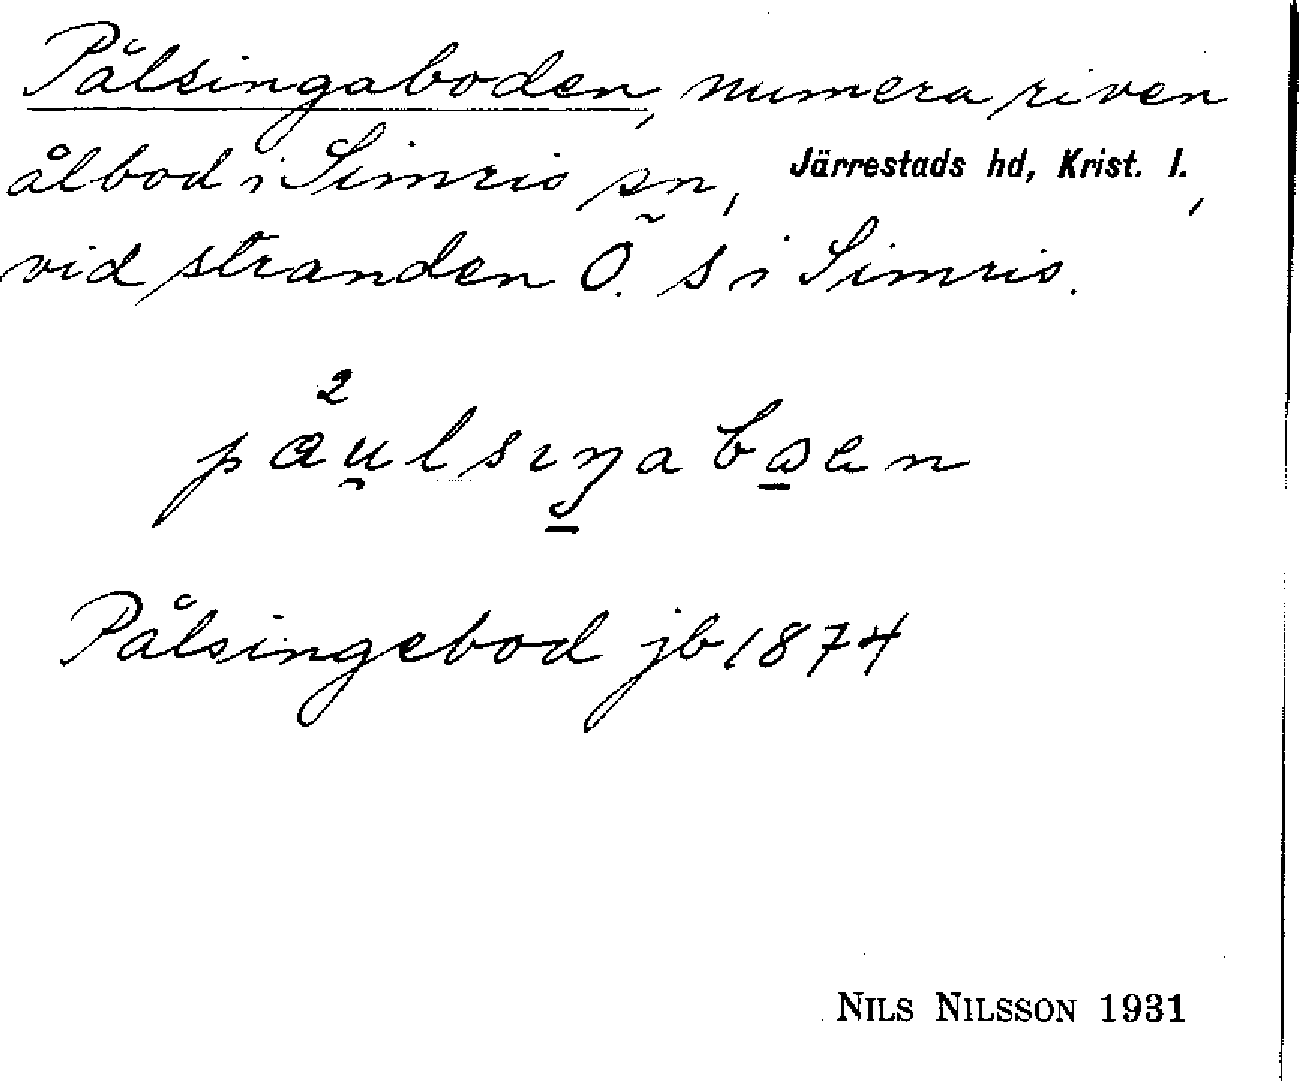 Pålsingaboden, numera riven
ålbod i Simris sn, Järrestads hd, Krist. l.,
vid stranden Ö. S i Simris.
Pålsingebod jb 1874
NILS NILSSON 1931